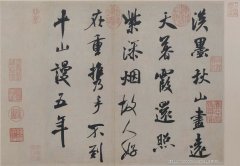 淡墨秋山畫遠
天暮霞還照
紫添煙故人好
在重攜手不到
平山謾五年